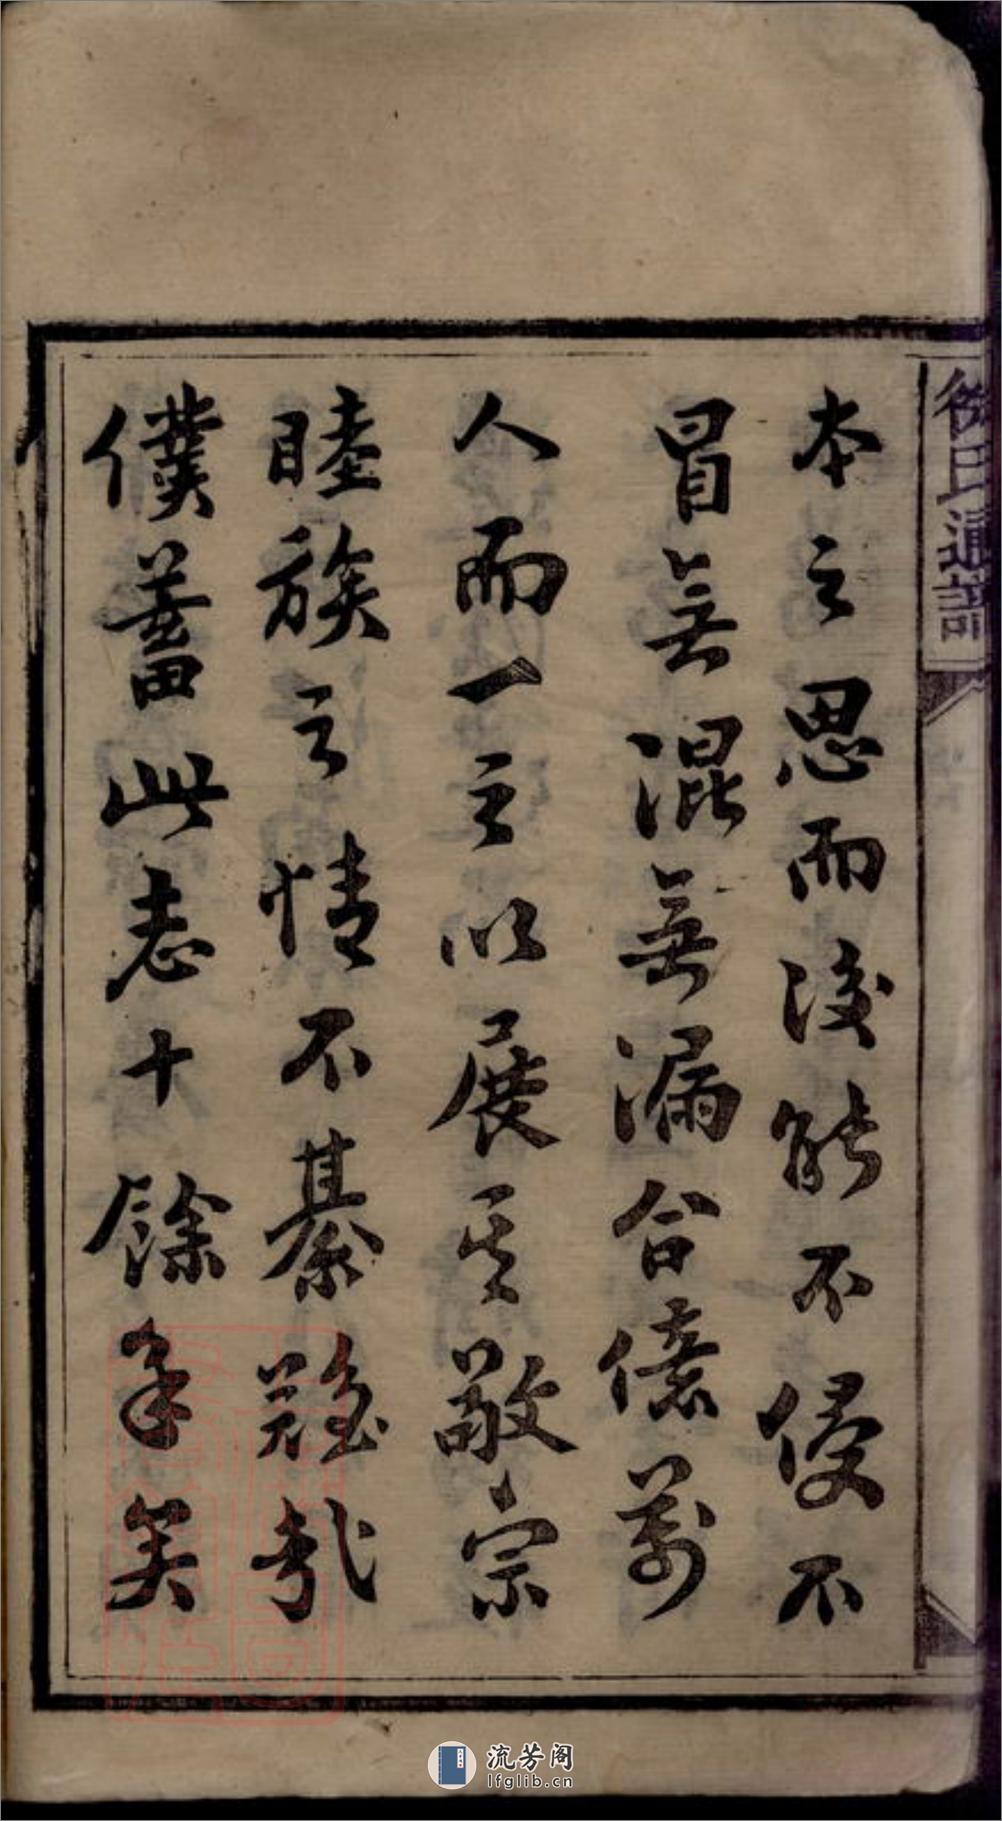 徐氏通譜
本之思而後能不侵不
冒無混無漏合億萬
人而一之以展其敬宗
睦族之情不綦難哉
僕蓄此志十餘年矣
流芳阁
lfglib.cn